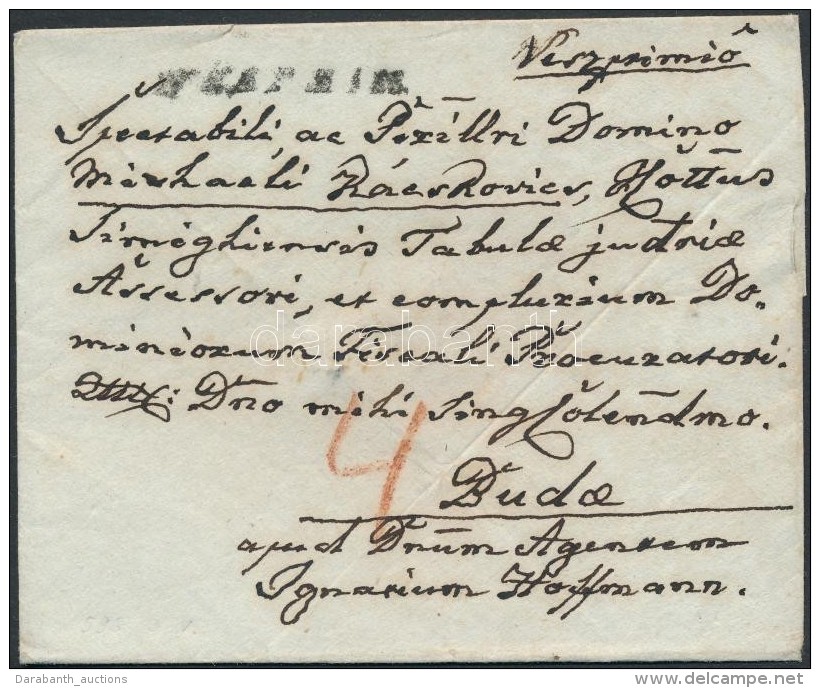 Veszprimiő
WESPRIM.
Spectabili, ac Perillri Domino
Michaeli Rácskovics, Iőttus
Simeghiensis Tabulæ judriæ
Assessori, et complurium Do-
miniorum Fiscali Procuratori.
Dño mihi Singl Cõlendmo.
4
Budæ
apud Dnum Agentem
Ignatium Hoffmann.
darabanth
Darabanth_auctions
delcampe.net